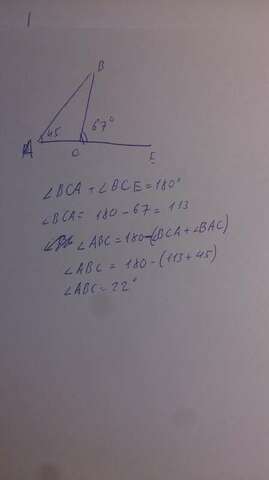 1
B
45
67°
A
C
E
∠BCA + ∠BCE = 180°
∠BCA = 180 - 67 = 113
∠ABC = 180 - (∠BCA + ∠BAC)
∠ABC = 180 - (113 + 45)
∠ABC = 22°